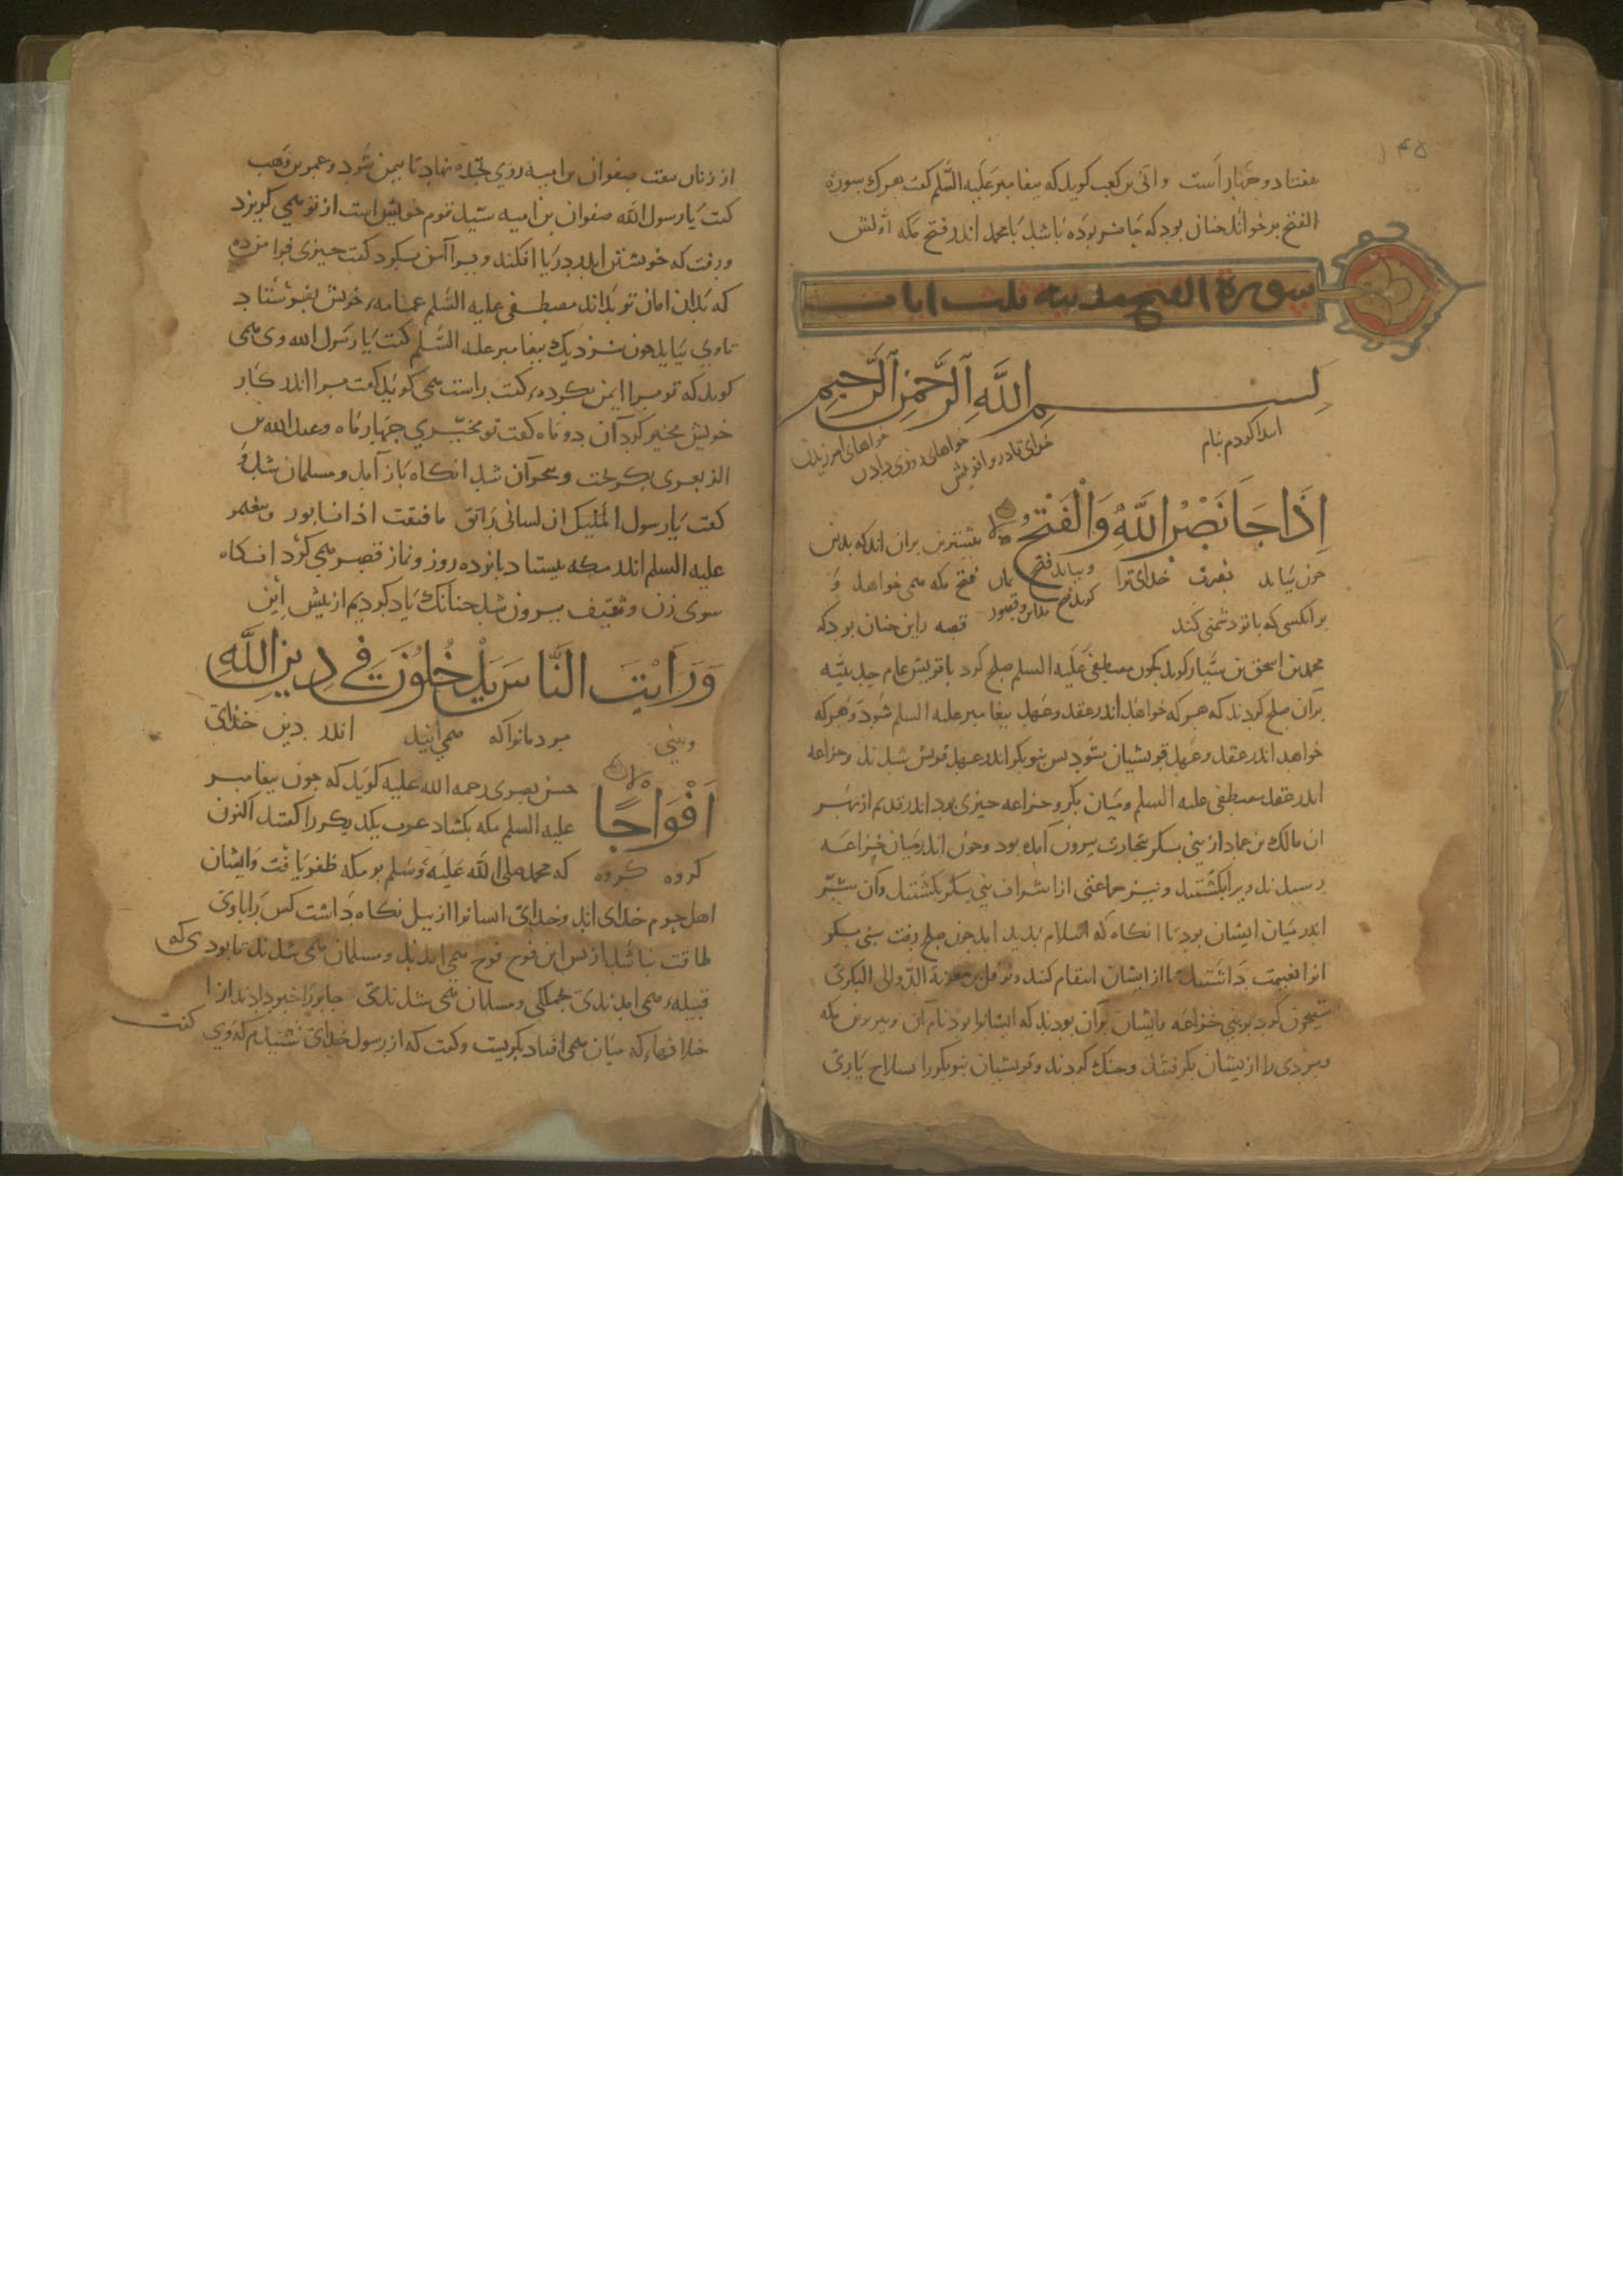 هفتاد و جهار است و ابی بن کعب کوید که بیغامبر علیه السلم کفت هرک سورة
الفتح برخواند جنان بود که حاضر بوده باشد بامحمد اندر فتح مکه اولش
سورة الفتح مدنیه ثلث ایات
بسم الله الرحمن الرحیم
ابتدا کردم بنام خدای قادر بر افرینش خواهای روزی دادن خواهای امرزیدن
اِذَا جَا نَصْرُ اللَّهِ وَالْفَتْحُ بیشترین بران اند که بدین
جون بیاید نصرت خدای ترا وبیاید فتح فتح مکه می خواهد و
بر انکسی که با تو دشمنی کند کویند فتح مداین و قصور قصه این جنان بود که
محمد بن اسحق بن سیار کوید کجون مصطفی علیه السلم صلح کرد با قریش عام حدیبیه
بران صلح کردند که هر که خواهد اندر عقد و عهد بیغامبر علیه السلم شود و هر که
خواهد اندر عقد و عهد قریشیان شود بس بنوبکر اندر عهد قریش شدند و خزاعه
اندر عقد مصطفی علیه السلم و میان بکر و خزاعه جیزی بود اندر قدیم از بهر
ان مالک بن عباد از بنی بکر بتجارت بیرون آمده بود و جون اندر میان خزاعه
رسید ند ویرا بکشتند و نیز جماعتی از اشراف بنی بکر بکشتند وآن شر
اندر میان ایشان بود تا انکاه که اسلام بدید امد جون صلح رفت بنی بکر
انرا غنیمت داشتند تا از ایشان انتقام کنند و نوفل بن معویة الدوالی البکری
شبیخون کرد بر بنی خزاعه وایشان بران بودند که ایشانرا بود نام آن و بیرون مکه
ومردی را از یشان بکرفتند و جنک کردند و قریشیان بنوبکر را بسلاح یاری
از زنان بیعت صفوان بن امیه روی بجده نهاد تا بیمن شود و عمیر بن وهب
کفت یا رسول الله صفوان بن امیه سید قوم خویش است از تو می کریزد
و رفت که خویشتن اندر دریا افکند ویرا آمن بکرد کفت جیزی فرا من ده
که بدان امان تو بداند مصطفی علیه السلم عمامهٔ خویش بفرستاد
تاوی بیاید جون نزدیک بیغامبر علیه السلم کفت یا رسول الله وی می
کوید که تو مرا ایمن بکرده‌ٔ کفت راست می کوید کفت مرا اندر کار
خویش مخیر کردان دو ماه کفت تو مخیری جهار ماه و عبد الله بن
الزبعری بکریخت و بنجران شد انکاه باز آمد و مسلمان شد و
کفت یا رسول الملیک ان لسانی راتق ما فتقت اذ انا بور و بیغمبر
علیه السلم اندر مکه بیستاد بانزده روز و نماز قصر می کرد انکاه
سوی هوازن و ثقیف بیرون شد جنانک یاد کردیم از بیش این
وَرَاَیْتَ النَّاسَ یَدْخُلُوْنَ فِی دِیْنِ اللَّهِ
وبینی مردمانرا که می ایند اندر دین خدای
اَفْوَاجًا حسن بصری رحمه الله علیه کوید که جون بیغامبر
علیه السلم مکه بکشاد عرب یکدیکر را کفتند اکنون
کروه کروه که محمد صلی الله علیه وسلم بر مکه ظفر یافت و ایشان
اهل حرم خدای اند و خدای ایشانرا از بیل نکاه داشت کس را باوی
طاقت نباشد ازبس این فوج فوج می امدند و مسلمان می شدند تا بودی که
قبیلهٔ می امدندی بجملکی و مسلمان می شدندی جابر را خبر دادند از
خلافهاء که میان می افتاد بکریست و کفت که از رسول خدای شنیدم که وی کفت